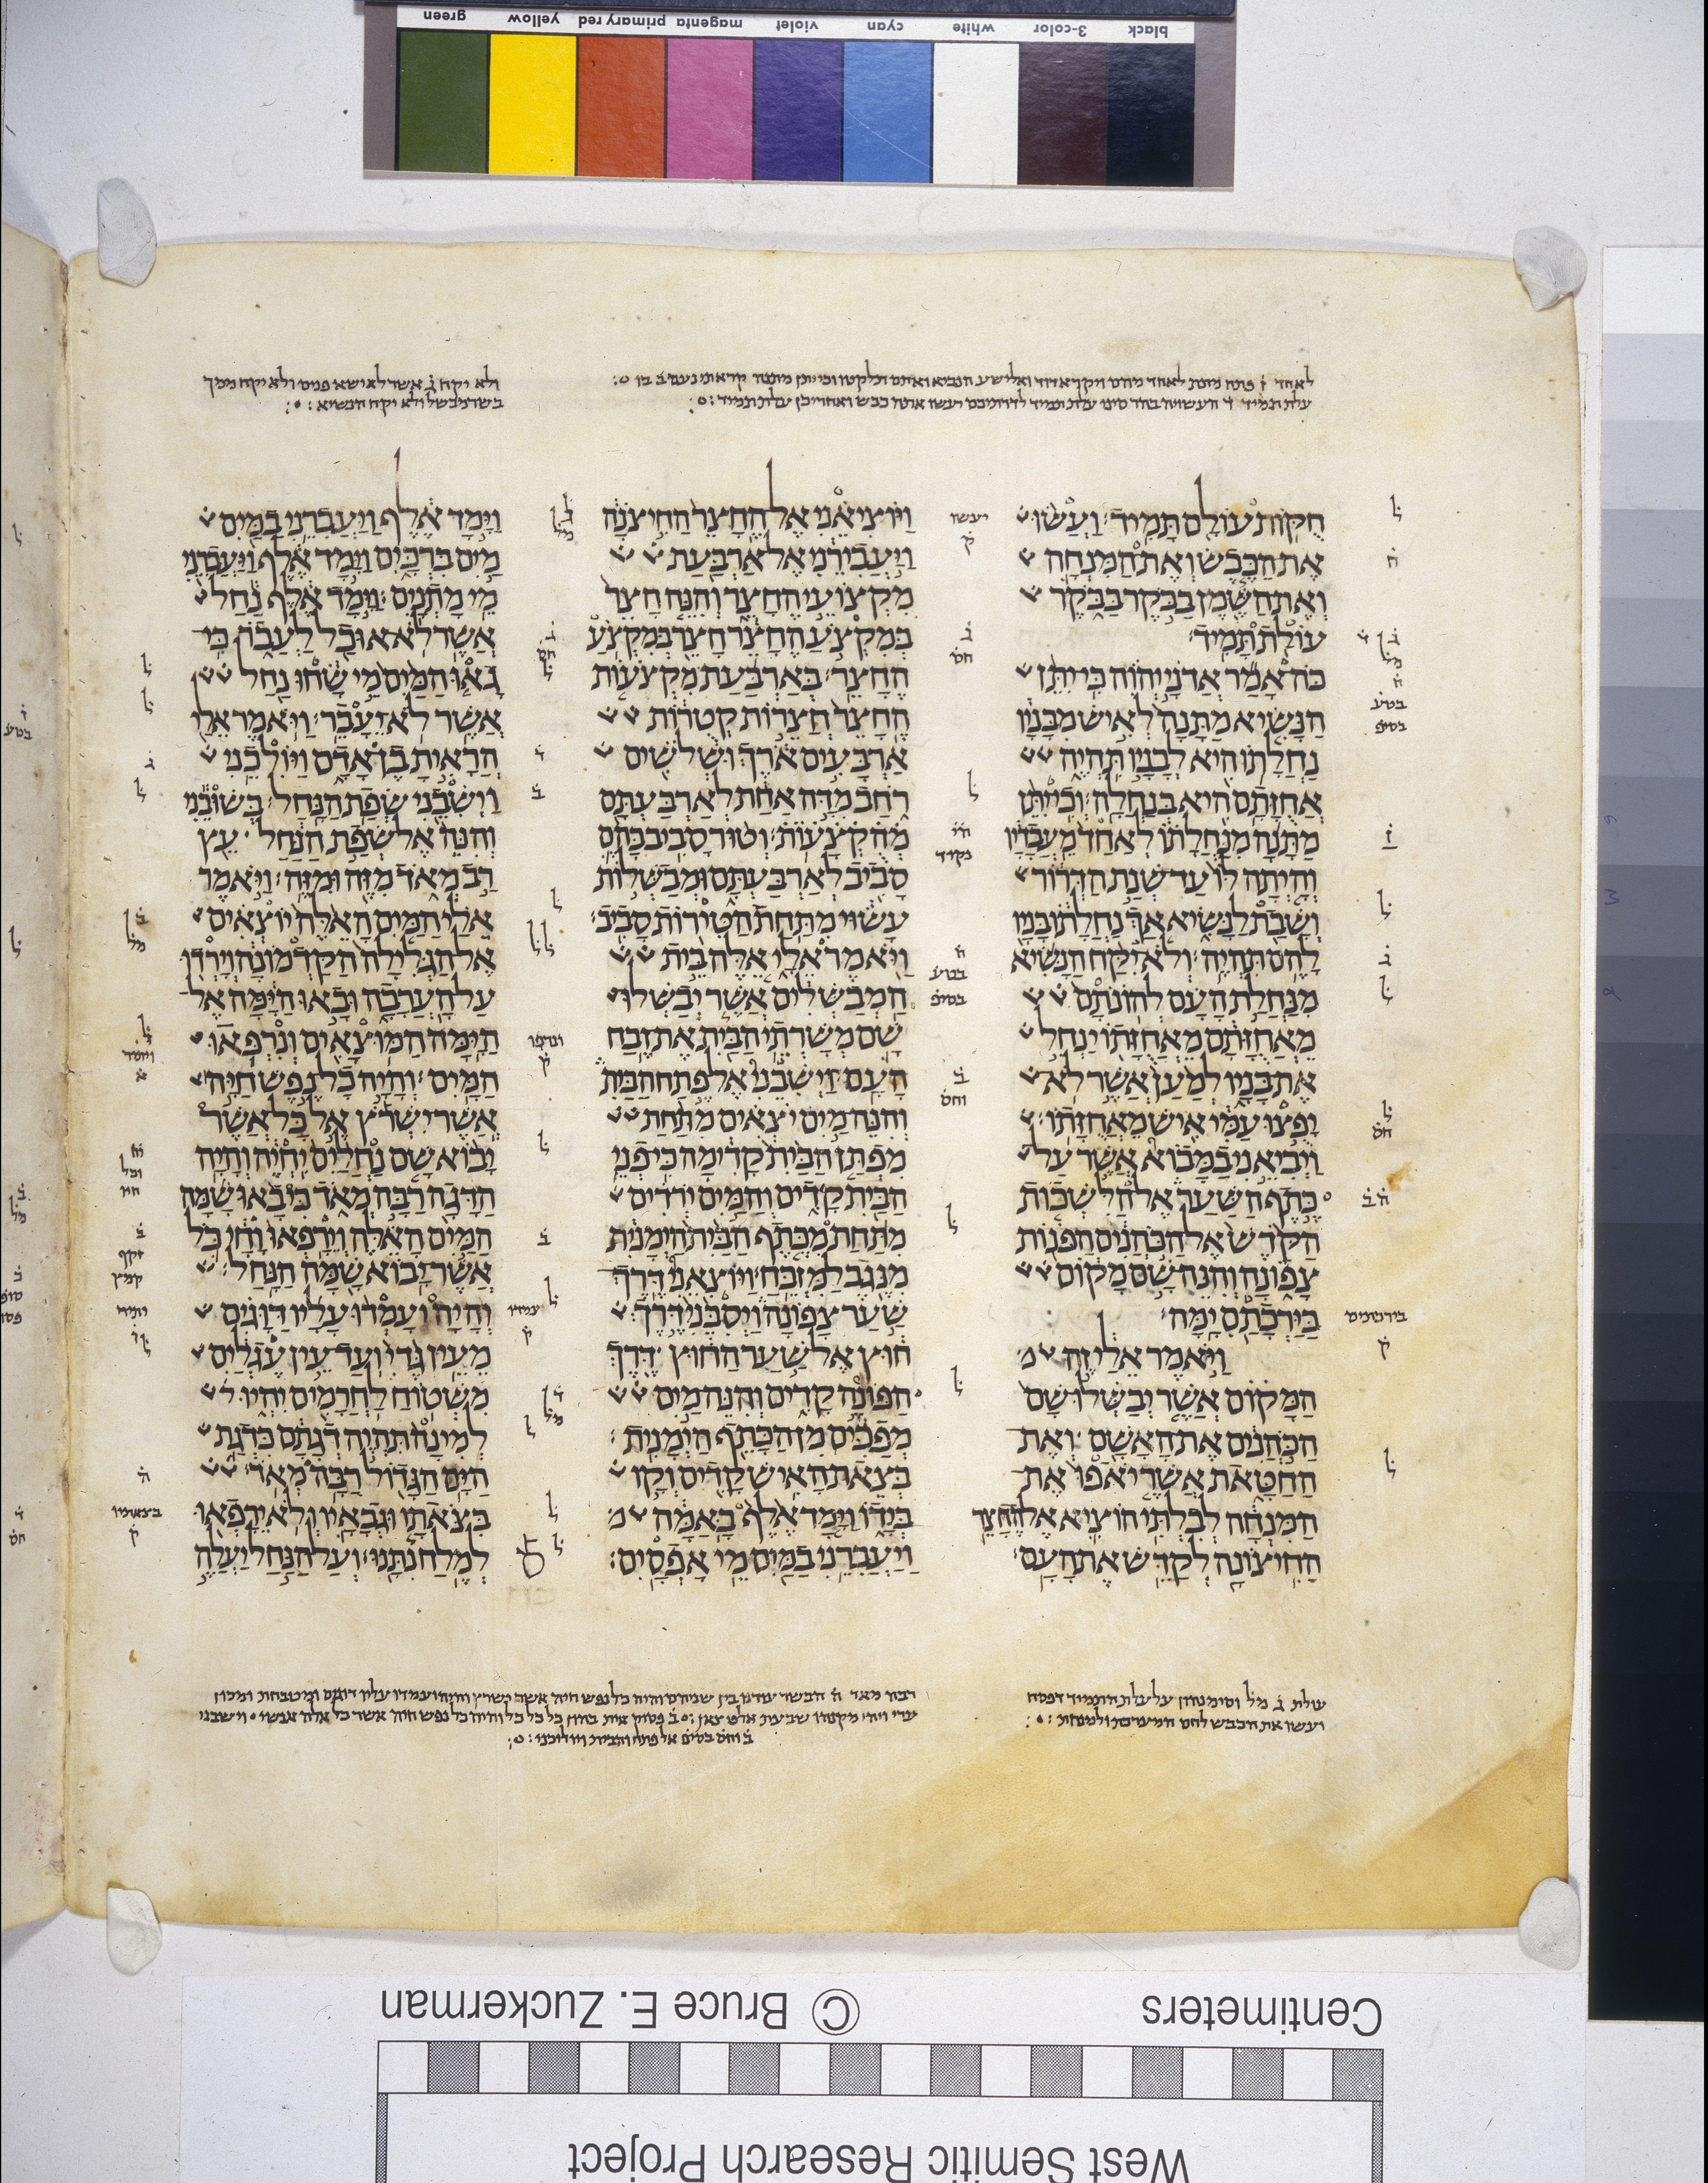 green yellow primary red magenta violet cyan white 3-color black
לאחד ז פתח
עלת תמיד ד העשויה בהר סיני עלת תמיד לדרתיכם ועשו אתה כבש ואחריבן עלת תמיד
ולא יקח ג אשר לא ישא פנים ולא יקח ממך
בשר מבשל ולא יקח הנשיא
חקות עולם תמיד ועשו
את הכבש ואת המנחה
ואת השמן בבקר בבקר
עולת תמיד
כה אמר אדני יהוה כי יתן
הנשיא מתנה לאיש מבניו
נחלתו היא לבניו תהיה
אחזתם היא בנחלה וכי יתן
מתנה מנחלתו לאחד מעבדיו
והיתה לו עד שנת הדרור
ושבת לנשיא אך נחלתו בניו
להם תהיה ולא יקח הנשיא
מנחלת העם להונתם
מאחזתם מאחזתו ינחל
את בניו למען אשר לא
יפצו עמי איש מאחזתו
ויביאני במבוא אשר על
כתף השער אל הלשכות
הקדש אל הכהנים הפנות
צפונה והנה שם מקום
בירכתם ימה
ויאמר אלי זה
המקום אשר יבשלו שם
הכהנים את האשם ואת
החטאת אשר יאפו את
המנחה לבלתי הוציא אל החצר
החיצונה לקדש את העם
ויוציאני אל החצר החיצנה
ויעבירני אל ארבעת
מקצועי החצר והנה חצר
במקצע החצר חצר במקצע
החצר בארבעת מקצעות
החצר חצרות קטרות
ארבעים ארך ושלשים
רחב מדה אחת לארבעתם
מהקצעות וטור סביב בהם
סביב לארבעתם ומבשלות
עשוי מתחת הטירות סביב
ויאמר אלי אלה בית
המבשלים אשר יבשלו
שם משרתי הבית את זבח
העם וישבני אל פתח הבית
והנה מים יצאים מתחת
מפתן הבית קדימה כי פני
הבית קדים והמים ירדים
מתחת מכתף הבית הימנית
מנגב למזבח ויוצאני דרך
שער צפונה ויסבני דרך
חוץ אל שער החוץ דרך
הפונה קדים והנה מים
מפכים מן הכתף הימנית
בצאת האיש קדים וקו
בידו וימד אלף באמה
ויעברני במים מי אפסים
וימד אלף ויעברני במים
מים ברכים וימד אלף ויעברני
מי מתנים וימד אלף נחל
אשר לא אוכל לעבר כי
גאו המים מי שחו נחל
אשר לא יעבר ויאמר אלי
הראית בן אדם ויולכני
וישבני שפת הנחל בשובני
והנה אל שפת הנחל עץ
רב מאד מזה ומזה ויאמר
אלי המים האלה יוצאים
אל הגלילה הקדמונה וירדו
על הערבה ובאו הימה אל
הימה המוצאים ונרפאו
המים והיה כל נפש חיה
אשר ישרץ אל כל אשר
יבוא שם נחלים יחיה והיה
הדגה רבה מאד כי באו שמה
המים האלה וירפאו וחי כל
אשר יבוא שמה הנחל
והיה ועמדו עליו דוגים
מעין גדי ועד עין עגלים
משטוח לחרמים יהיו
למינה תהיה דגתם כדגת
הים הגדול רבה מאד
בצאתו וגבאיו ולא ירפאו
למלח נתנו ועל הנחל יעלה
עולת ג מל וסימנהון על עלת התמיד דפסח
ועשו את הכבש להם
© Bruce E. Zuckerman
Centimeters
West Semitic Research Project